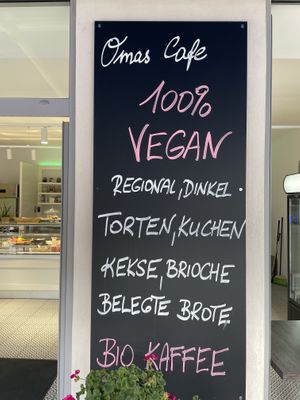 Omas Cafe
100%
VEGAN
REGIONAL, DINKEL
TORTEN, KUCHEN
KEKSE, BRIOCHE
BELEGTE BROTE
BIO KAFFEE